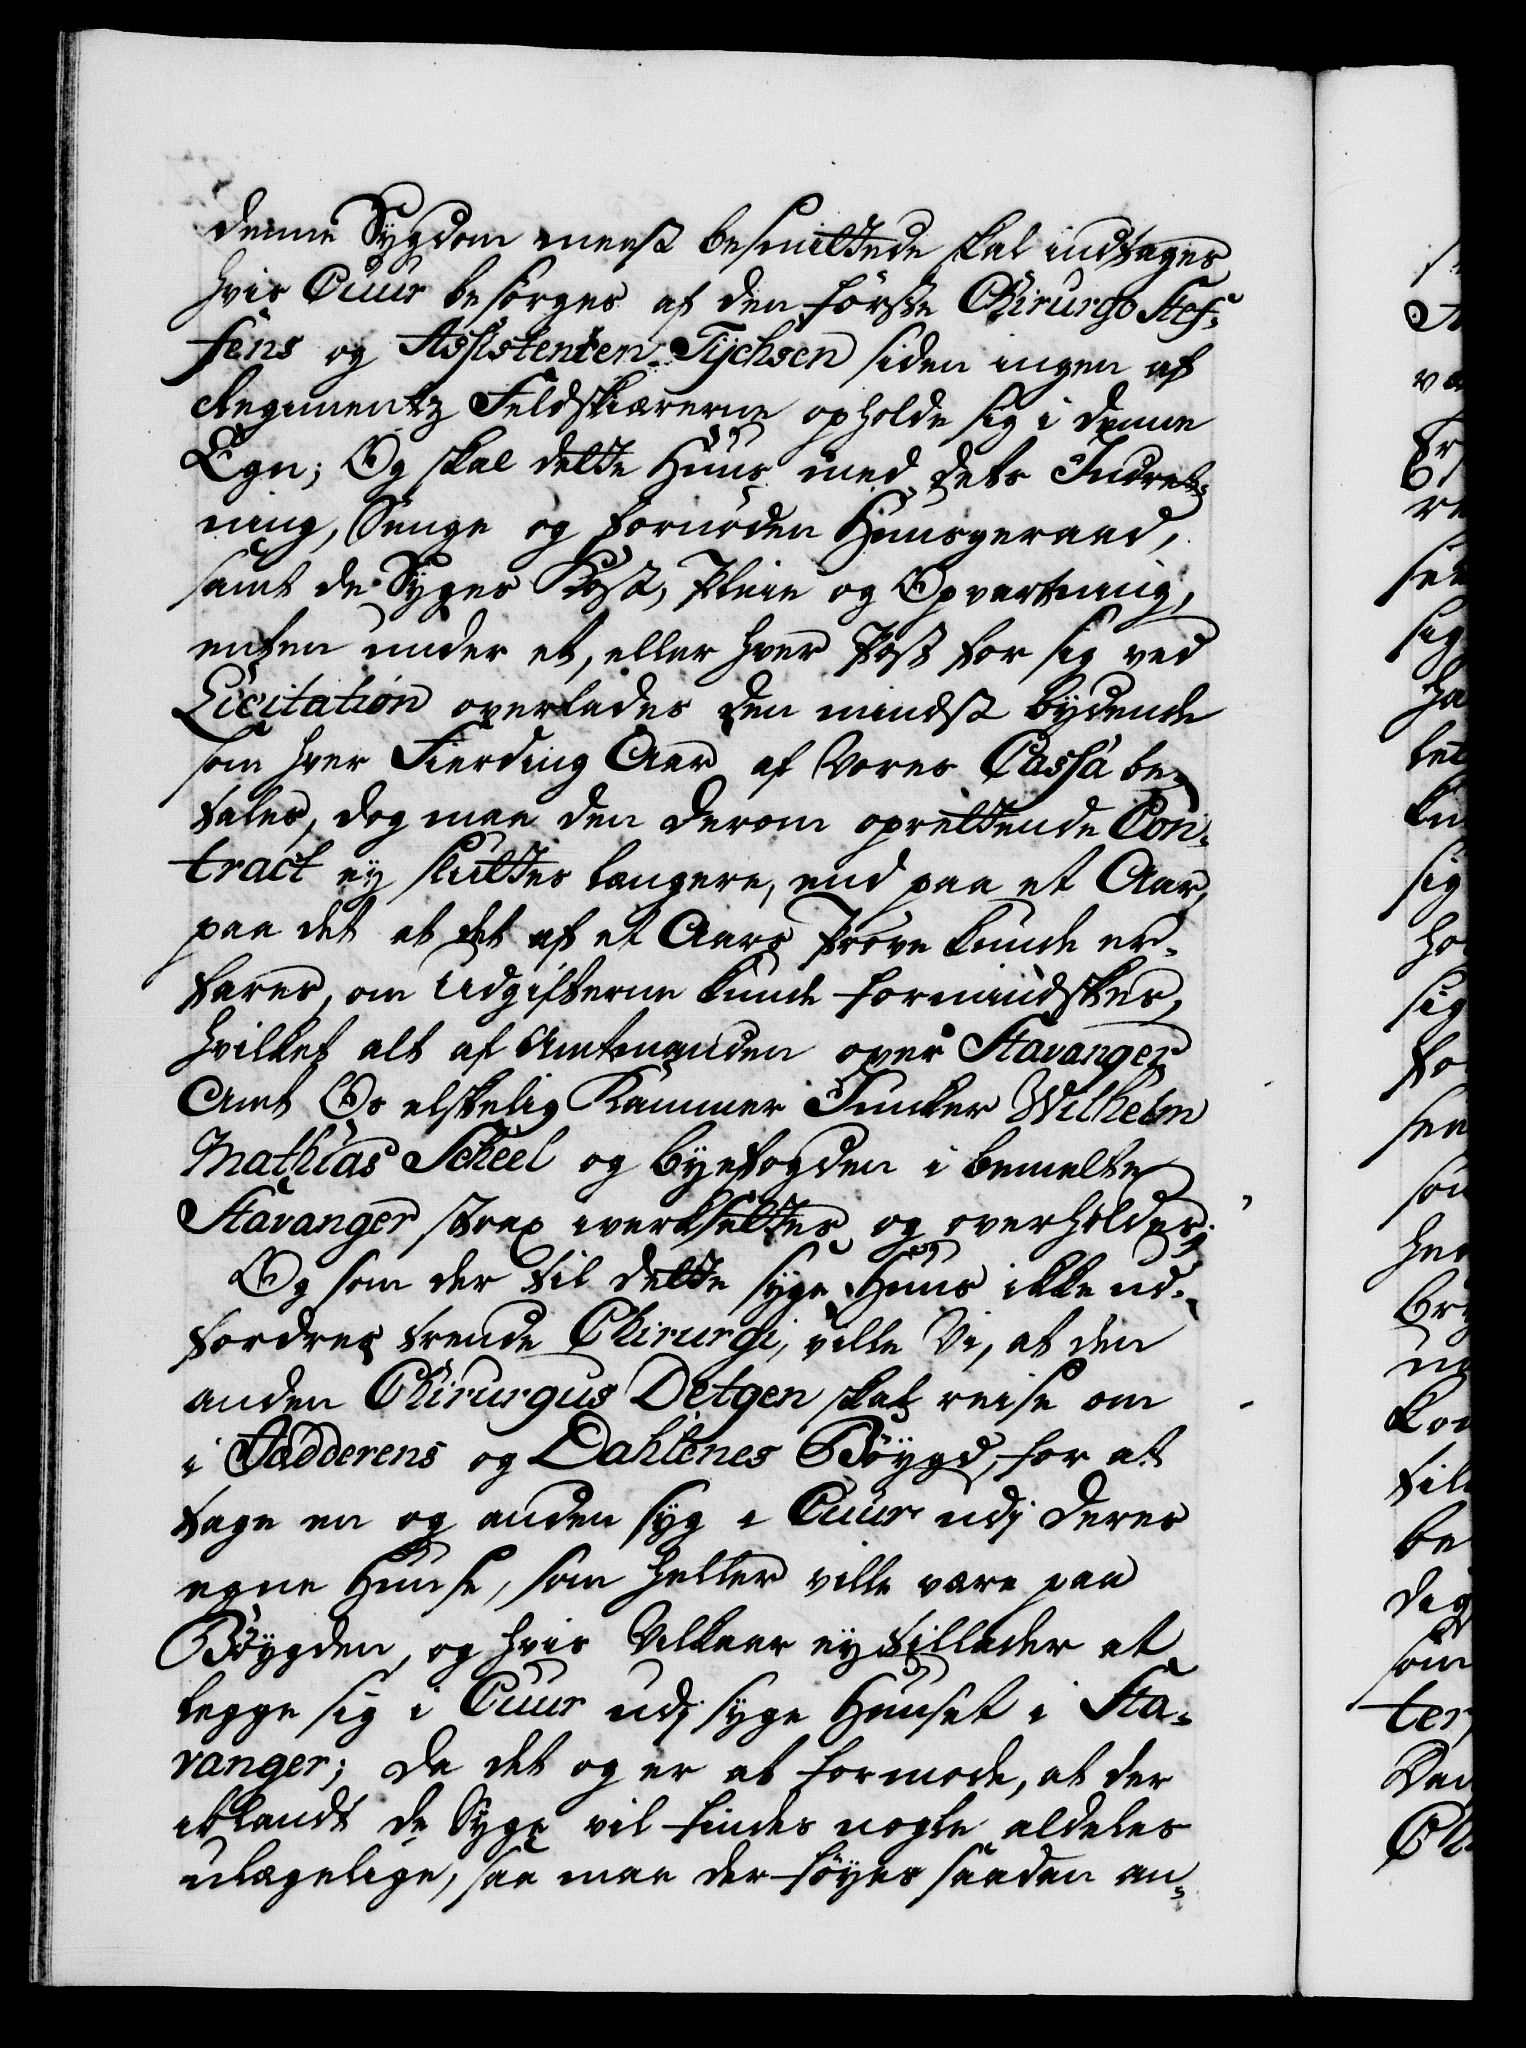 denne Sÿgdom meest besmittede skal indtages
hvis Cuur besörges af den förste Chirurgo Stef-
fens og Assistenten Tÿchsen siden ingen af
Regimentz Feldskiærerne opholde sig i denne
Egn; Og skal dette Huus med dets Indret-
ning, Senge og fornöden Huusgeraad,
samt de Syges Kost, Pleie og Opvartning,
enten under et, eller hver Post for sig ved
Licitation overlades den mindst bÿdende
som hver Fierding Aar af Vores Cassa be-
tales, dog maa den derom oprettende Con-
tract eÿ sluttes længere, end paa et Aar,
paa det at det af et Aars Pröve kunde er-
fares, om Udgifterne kunde formindskes,
hvilket alt af Amtmanden over Stavanger
Amt Os elskelig Kammer Juncker Wilhelm
Mathias Scheel og Bÿefogden i bemelte
Stavanger strax iverksettes og overholdes;
Og som der til dette syge Huus ikke ud-
fordres trende Chirurgi, ville Vi, at den
anden Chirurgus Detgen skal reise om
i Jadderens og Dahlenes Böygd, for at
tage en og anden syg i Cuur udj deres
egne Huuse, som heller ville være paa
Böygden, og hvis Vilkaar eÿ tillader at
legge sig i Cuur udj syge Huuset i Sta-
vanger; Da det og er at formode, at der
iblandt de Syge vil findes nogle aldeles
ulægelige, saa maa der föyes saadan an-